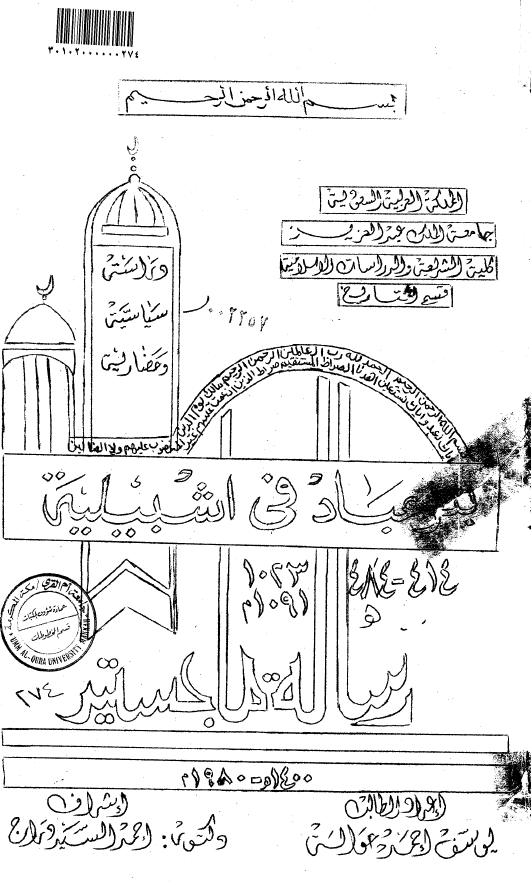 ٣٠١٠٢٠٠٠٠٠٠٢٧٤
بسم الله الرحمن الرحيم
المملكة العربية السعودية
جامعة الملك عبد العزيز
كلية الشريعة والدراسات الاسلامية
قسم التاريخ
دراسة
سياسية
وحضارية
٠٠٢٢٥٧
بسم الله الرحمن الرحيم الحمد لله رب العالمين الرحمن الرحيم مالك يوم الدين
اياك نعبد واياك نستعين اهدنا الصراط المستقيم صراط الذين انعمت عليهم غير
المغضوب عليهم ولا الضالين
بنو عباد في اشبيلية
٤١٤-٤٨٤
هـ
١٠٢٣
١٠٩١م
جامعة أم القرى / مكة المكرمة
عمادة شؤون المكتبات
قسم المخطوطات
UMM AL-QURA UNIVERSITY MAKKAH
رسالة ماجستير
٢٧٤
١٤٠٠هـ-١٩٨٠م
إعداد الطالب
يوسف احمد حوالة
إشراف
دكتور: احمد السيد دراج